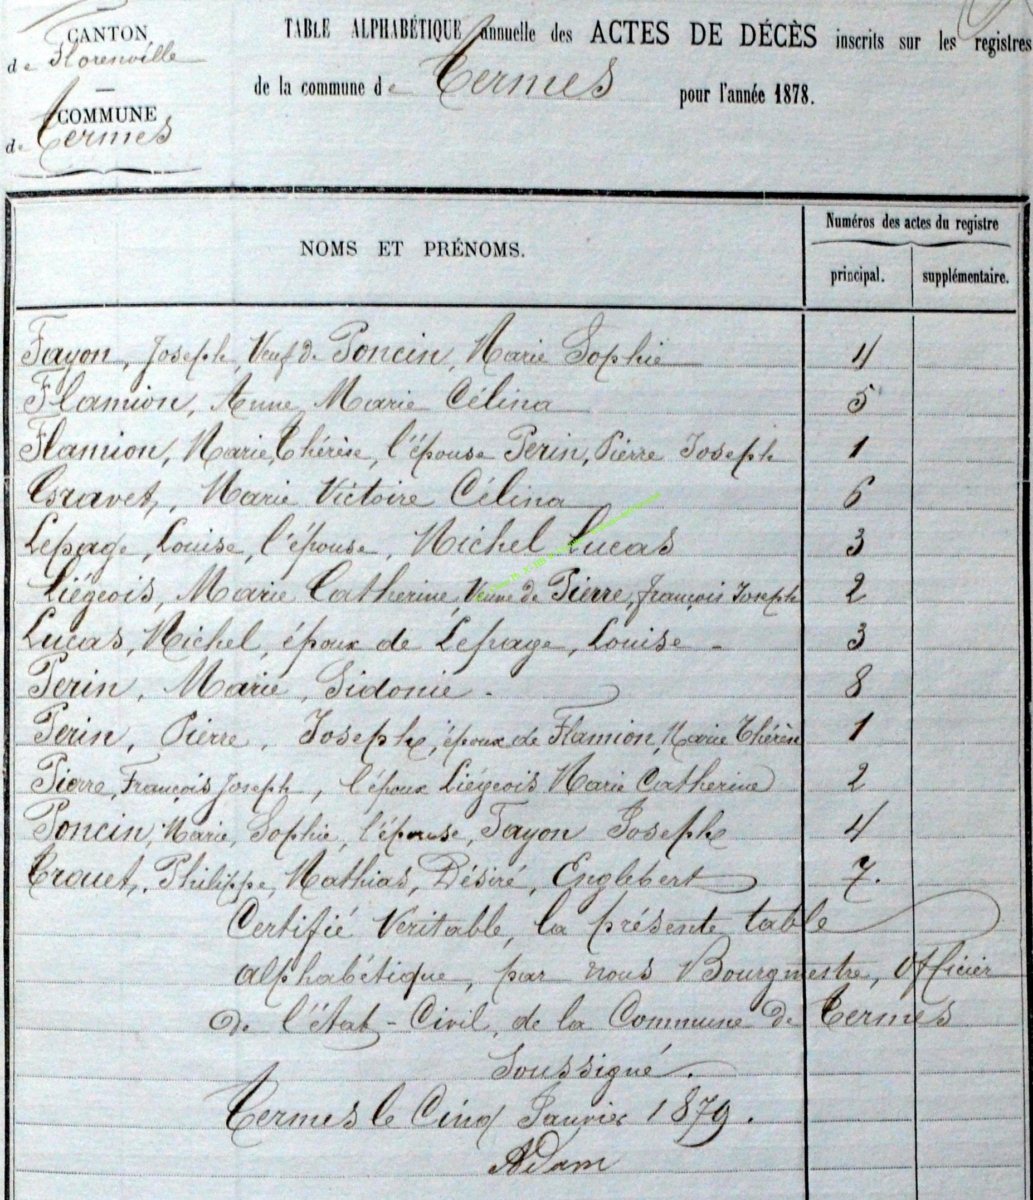 CANTON
de Florenville
COMMUNE
de Termes
TABLE ALPHABÉTIQUE annuelle des ACTES DE DÉCÈS inscrits sur les registres
de la commune de Termes pour l'année 1878.
NOMS ET PRÉNOMS.
Numéros des actes du registre
principal. supplémentaire.
Fayon, Joseph, Veuf de Poncin, Marie Sophie 4
Flamion, Anne Marie Célina 5
Flamion, Marie, Thérèse, l'épouse Perin, Pierre Joseph 1
Gravet, Marie Victoire Célina 6
Lepage, Louise, l'épouse, Michel Lucas 3
Liégeois, Marie Catherine, Veuve de Pierre, françois Joseph 2
Lucas, Michel, époux de Lepage, Louise - 3
Perin, Marie, Sidonie - 8
Perin, Pierre, Joseph, époux de Flamion, Marie Thérèse 1
Pierre, François Joseph, l'époux Liégeois Marie Catherine 2
Poncin, Marie, Sophie, l'épouse, Fayon Joseph 4
Trouet, Philippe, Mathias, Désiré, Englebert 7.
Certifié Véritable, la présente table
alphabétique, par nous Bourgmestre, officier
de l'état-Civil, de la Commune de Termes
Soussigné.
Termes le Cinq Janvier 1879.
Adam